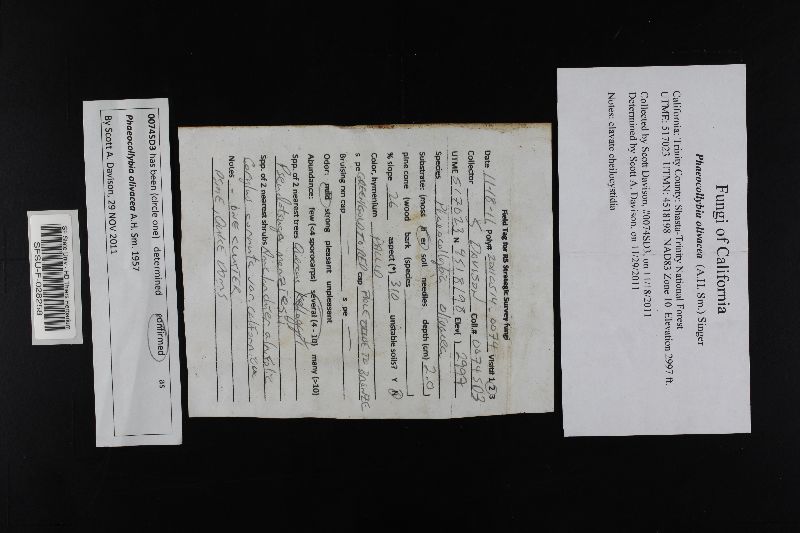 Fungi of California
Phaeocollybia olivacea (A.H. Sm.) Singer
California: Trinity County: Shasta-Trinity National Forest
UTME: 517023 UTMN: 4518198 NAD83 Zone 10 Elevation 2997 ft.
Collected by Scott Davison, 20074SD3, on 11/18/2011
Determined by Scott A. Davison, on 11/29/2011
Notes: clavate cheilocystidia
Field Tag for R5 Strategic Survey fungi
Date 11-18-11 Poly# 0074 Visit# 1 2 3
Collector S. Davison Coll.# 0074SD3
UTME 517023 N 4518198 Elev( ) 2997
Species Phaeocollybia olivacea
Substrate: (moss soil needles depth (cm) 2.0
pine cone (wood bark (species
% slope 26 aspect (°) 310 unstable soils? Y N
Color, hymenium
s pe cap
Bruising rxn cap s pe
Odor: mild strong pleasant unpleasant
Abundance: few (<4 sporocarps) several (4 - 10) many (>10)
Spp. of 2 nearest trees Quercus kelloggii
Pseudotsuga menziesii
Spp. of 2 nearest shrubs
Corylus cornuta var californica
Notes - ONE CLUSTER
0074SD3 has been (circle one) determined confirmed as
Phaeocollybia olivacea A.H. Sm. 1957
By Scott A. Davison, 29 NOV 2011
SFSU-F-028258